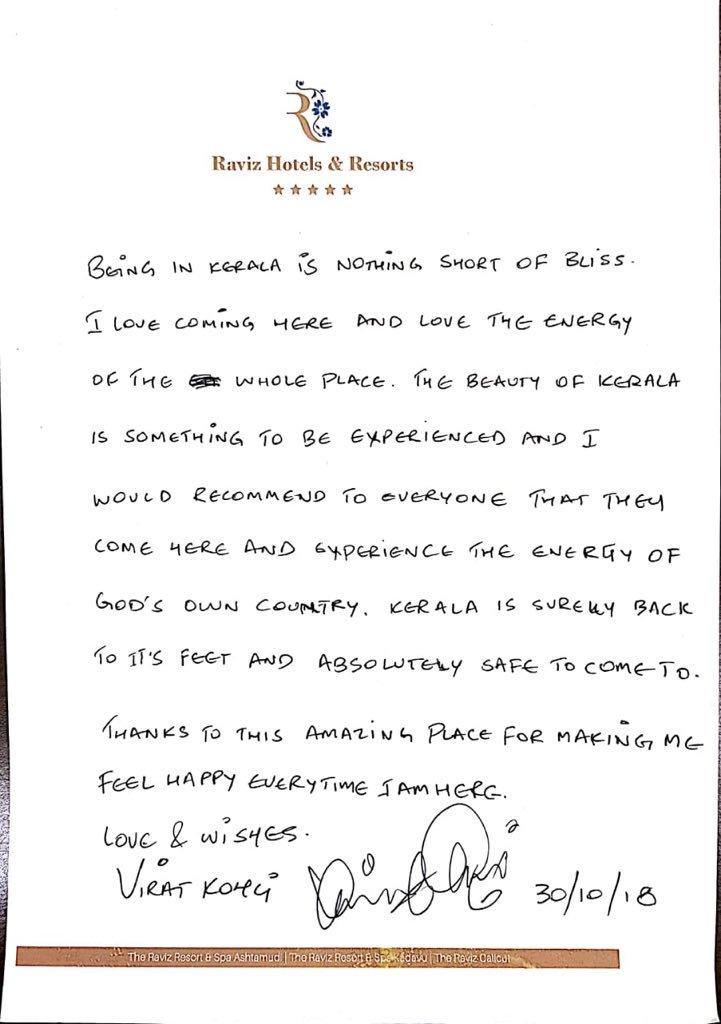 R
Raviz Hotels & Resorts
BEING IN KERALA IS NOTHING SHORT OF BLISS.
I LOVE COMING HERE AND LOVE THE ENERGY
OF THE WHOLE PLACE. THE BEAUTY OF KERALA
IS SOMETHING TO BE EXPERIENCED AND I
WOULD RECOMMEND TO EVERYONE THAT THEY
COME HERE AND EXPERIENCE THE ENERGY OF
GOD'S OWN COUNTRY. KERALA IS SURELY BACK
TO IT'S FEET AND ABSOLUTELY SAFE TO COME TO.
THANKS TO THIS AMAZING PLACE FOR MAKING ME
FEEL HAPPY EVERYTIME I AM HERE.
LOVE & WISHES.
VIRAT KOHLI 30/10/18
The Raviz Resort & Spa Ashtamudi | The Raviz Resort & Spa Kadavu | The Raviz Calicut